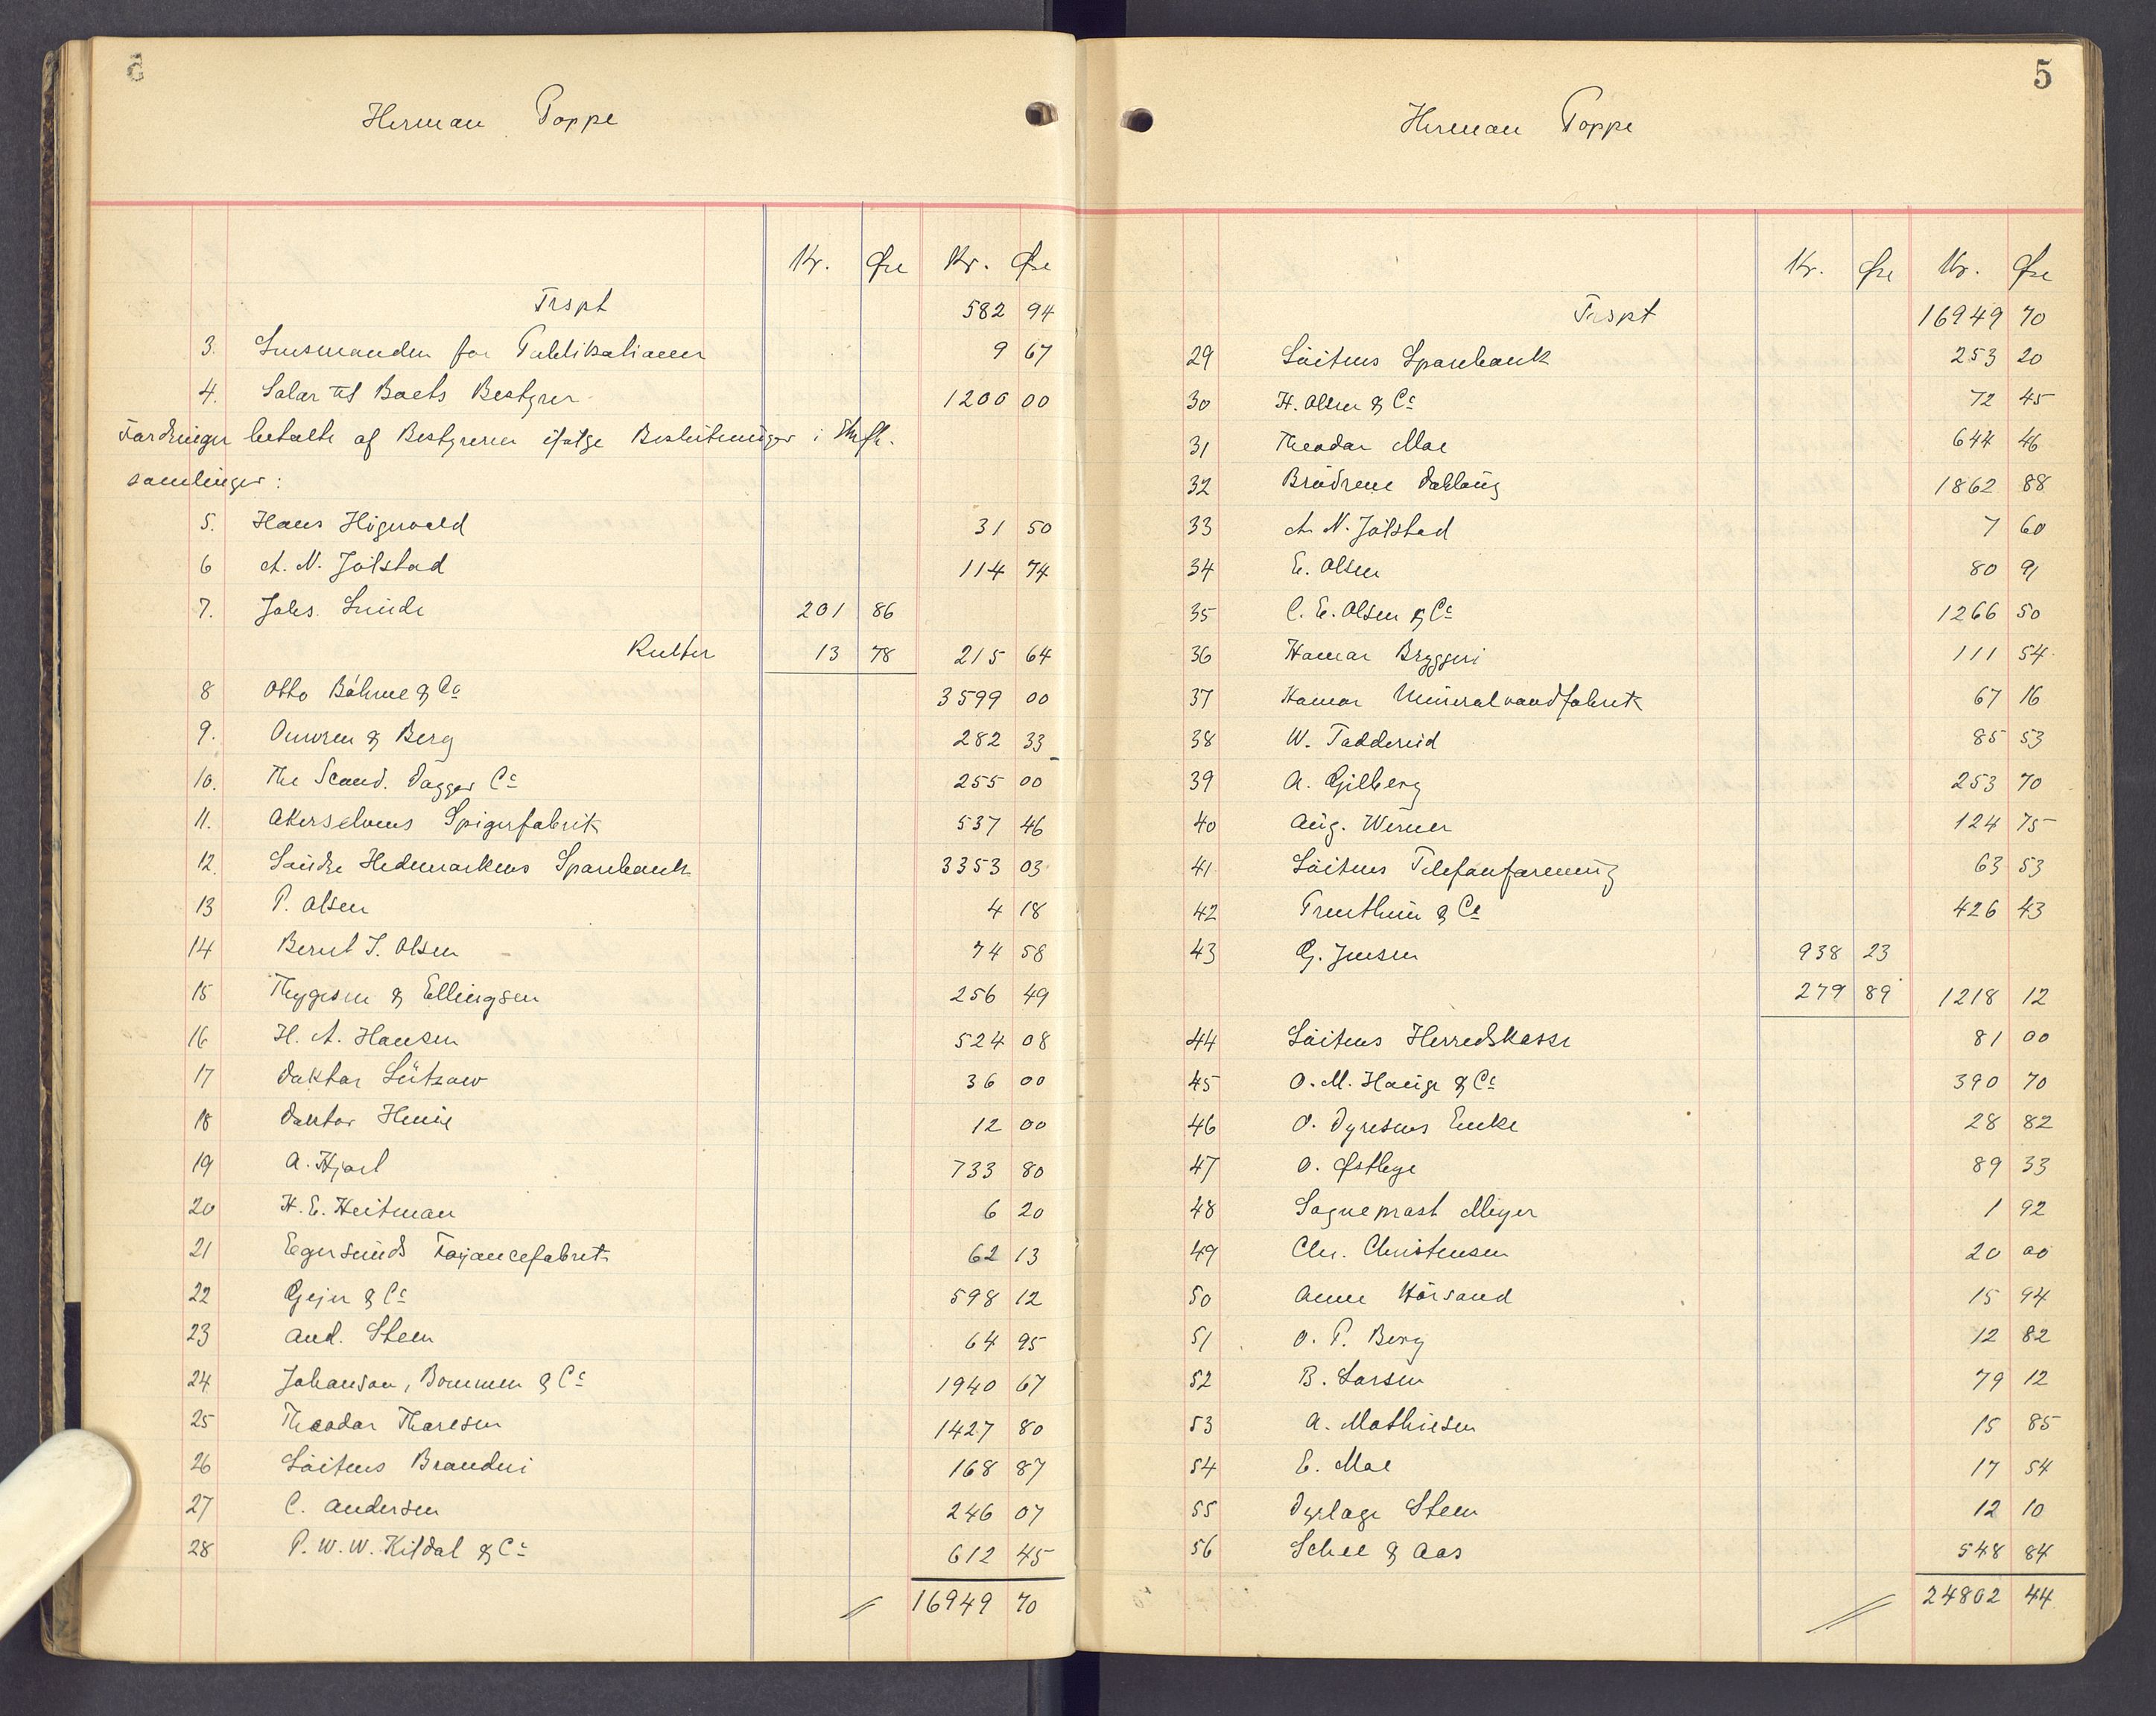 Herman Poppe
Kr. Øre Kr. Øre
Trspt 582 94
3. Lensmanden for Publikationer 9 67
4. Salar til Boets Bestyrer 1200 00
Fordringer betalte af Bestyreren ifølge Beslutninger i Skifte-
samlinger:
5. Hans Högnvald 31 50
6 A. N. Jölstad 114 74
7. Johs. Lunde 201 86
Renter 13 78 215 64
8 Otto Böhme & Co 3599 00
9. Onuren & Berg 282 33
10. The Scand. Dagger Co 255 00
11. Akerselvens Spigerfabrik 537 46
12. Söndre Hedemarkens Sparebank 3353 03
13 P. Olsen 4 18
14 Bernt I. Olsen 74 58
15 Thygesen & Ellingsen 256 49
16 H. A. Hansen 524 08
17 Doktor Lützow 36 00
18 Doktor Henie 12 00
19 A. Hjorl 733 80
20 H. E. Heitman 6 20
21 Egersunds Fajancefabrik 62 13
22 Gejer & Co 598 12
23 And. Steen 64 95
24 Johanson, Bommen & Co 1940 67
25 Theodor Thoresen 1427 80
26 Löitens Brænderi 168 87
27 C. Andersen 246 07
28 P. W. W. Kildal & Co 612 45
16949 70
5
Herman Poppe
Kr. Øre Kr. Øre
Trspt 16949 70
29 Löitens Sparebank 253 20
30 H. Olsen & Co 72 45
31 Theodor Moe 644 46
32 Brödrene Dobloug 1862 88
33 A. N. Jölstad 7 60
34 E. Olsen 80 91
35 C. E. Olsen & Co 1266 50
36 Hamar Bryggeri 111 54
37 Hamar Mineralvandfabrik 67 16
38 W. Taddereid 85 53
39 A. Gilberg 253 70
40 Aug. Werner 124 75
41 Löitens Telefonforening 63 53
42 Trenthum & Co 426 43
43 G. Jensen 938 23
279 89 1218 12
44 Löitens Herredskasse 81 00
45 O. M. Hauge & Co 390 70
46 O. Dyresens Enke 28 82
47 O. Østbye 89 33
48 Sogneprest Meyer 1 92
49 Chr. Christensen 20 00
50 Anne Hörsand 15 94
51 O. P. Berg 12 82
52 B. Larsen 79 12
53 A. Mathiesen 15 85
54 E. Moe 17 54
55 Dyrlæge Steen 12 10
56 Schee & Aas 548 84
24802 44